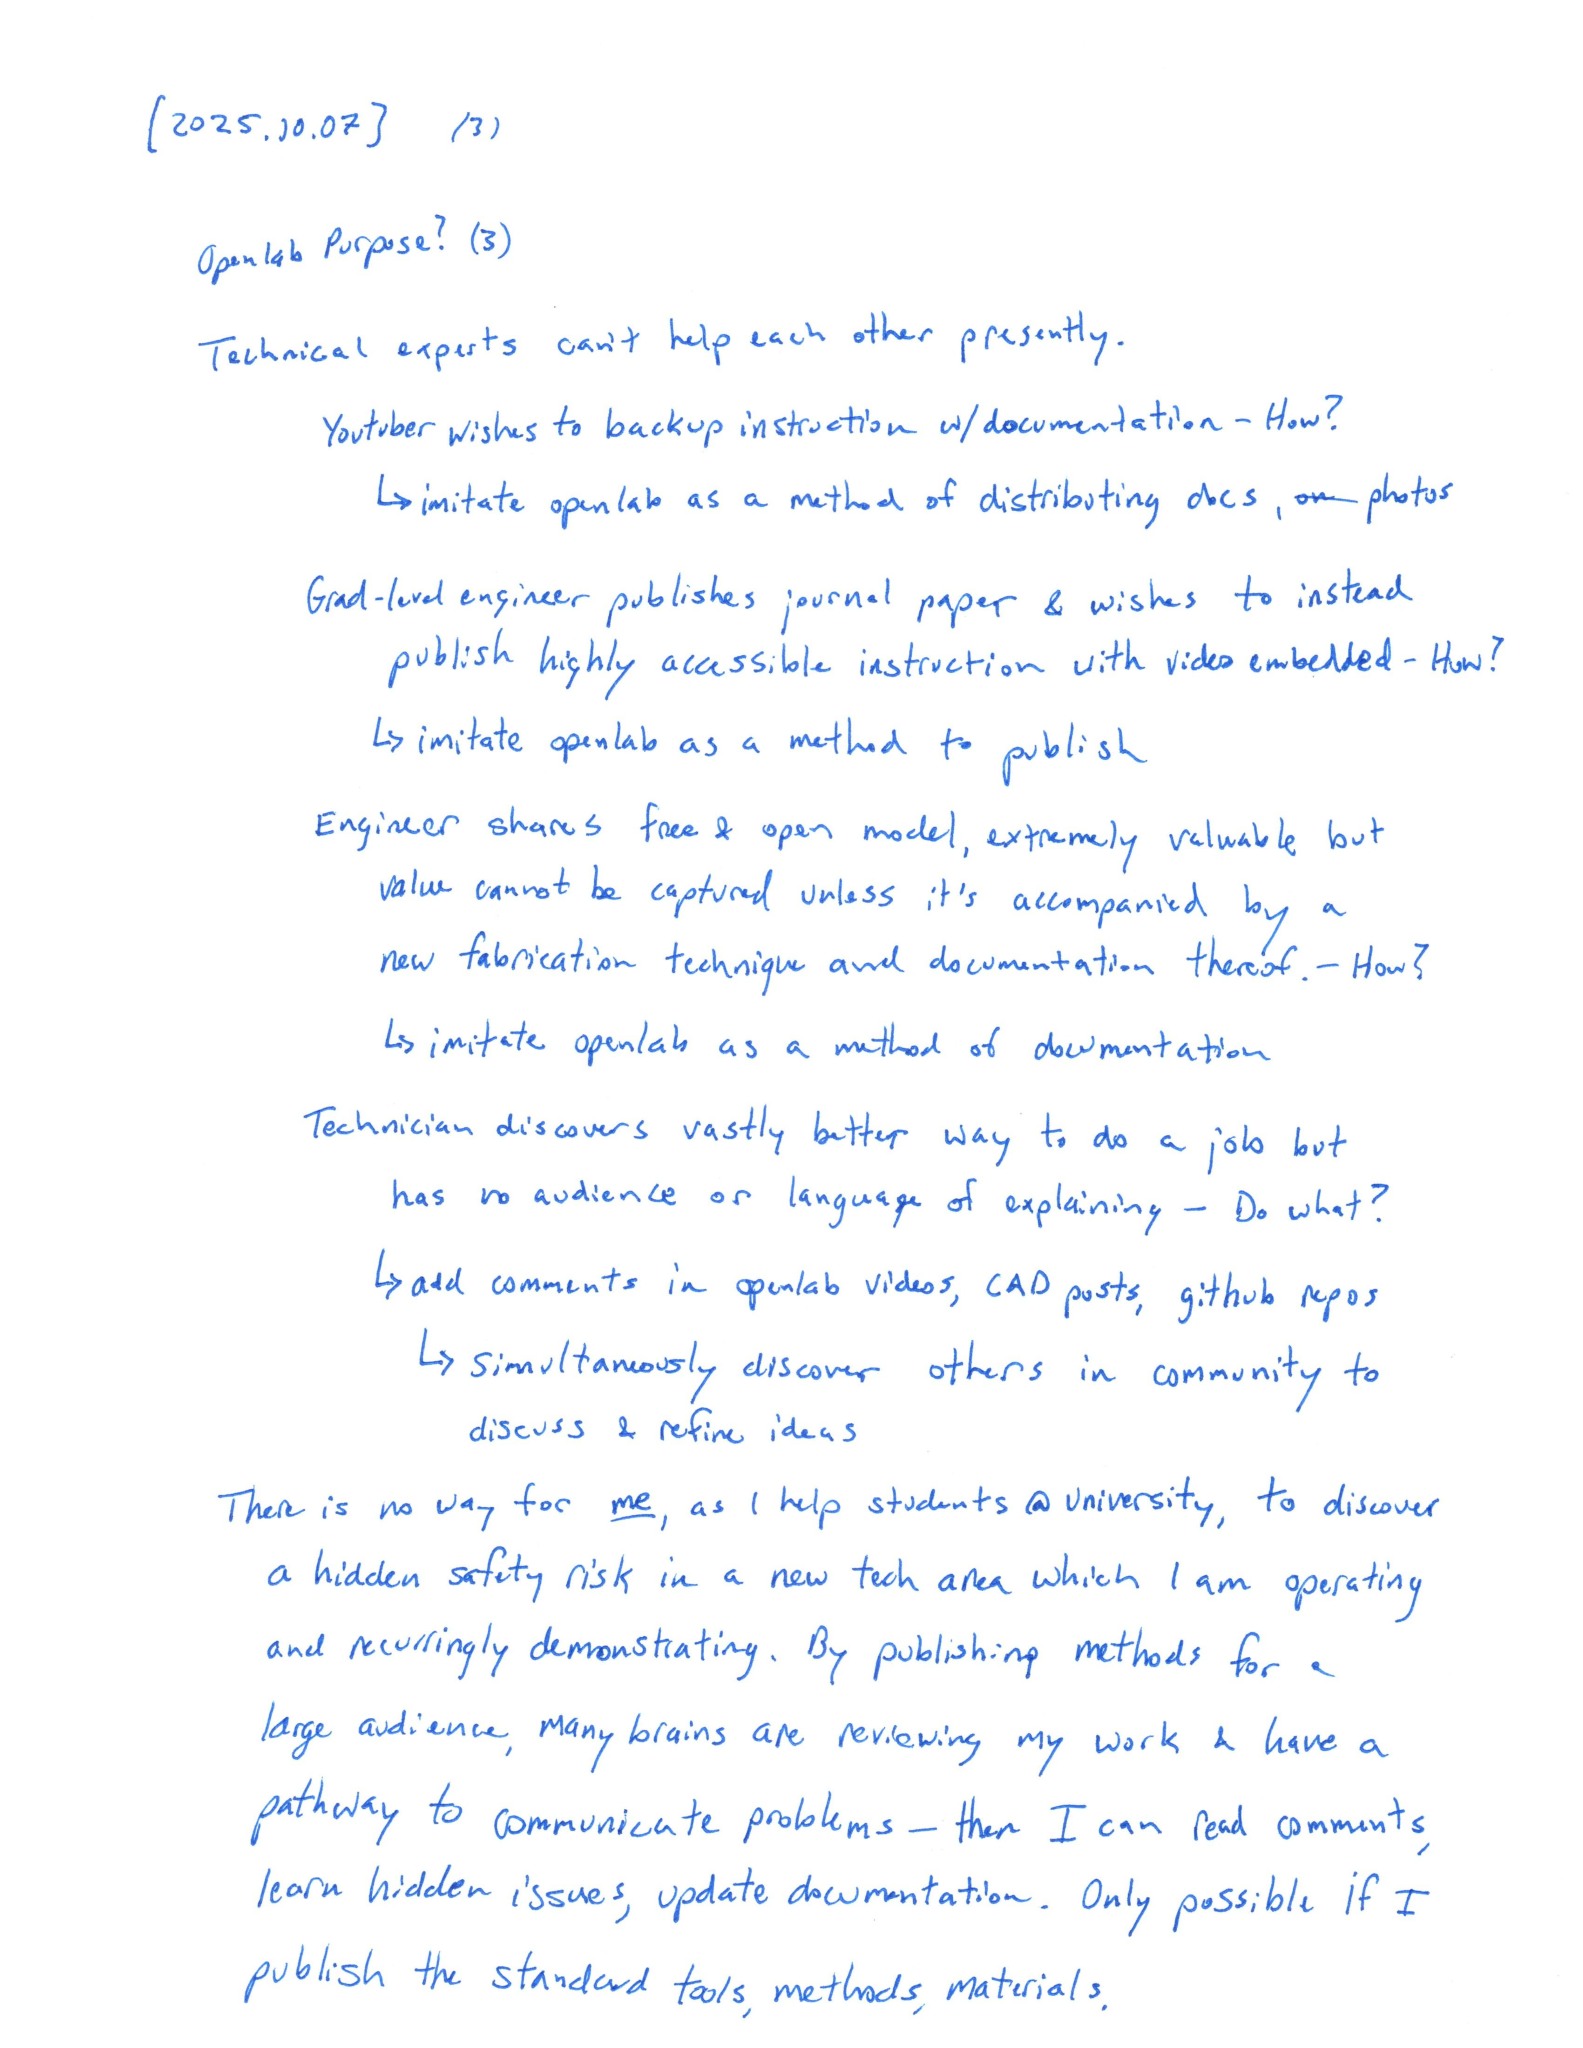 [2025.10.07] (3)
Openlab Purpose? (3)
Technical experts can't help each other presently.
Youtuber wishes to backup instruction w/documentation - How?
↳ imitate openlab as a method of distributing docs, photos
Grad-level engineer publishes journal paper & wishes to instead
publish highly accessible instruction with video embedded - How?
↳ imitate openlab as a method to publish
Engineer shares free & open model, extremely valuable but
value cannot be captured unless it's accompanied by a
new fabrication technique and documentation thereof. - How?
↳ imitate openlab as a method of documentation
Technician discovers vastly better way to do a job but
has no audience or language of explaining - Do what?
↳ add comments in openlab videos, CAD posts, github repos
↳ simultaneously discover others in community to
discuss & refine ideas
There is no way for me, as I help students @ University, to discover
a hidden safety risk in a new tech area which I am operating
and recurringly demonstrating. By publishing methods for a
large audience, many brains are reviewing my work & have a
pathway to communicate problems - then I can read comments,
learn hidden issues, update documentation. Only possible if I
publish the standard tools, methods, materials.